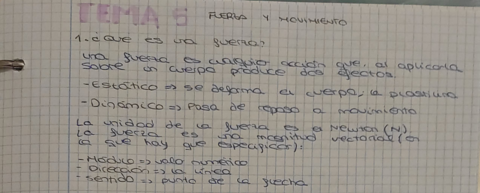 TEMA 5 FUERZA Y MOVIMIENTO
1. ¿Que es una fuerza?
Una fuerza es cualquier acción que, al aplicarla
sobre un cuerpo produce dos efectos:
- Estático => se deforma el cuerpo, la
- Dinámico => Pasa de reposo a movimiento
La unidad de la fuerza es el Newton (N)
La fuerza es una magnitud vectorial (en
la que hay que especificar):
- Módulo => valor numérico
- Dirección => la línea
- Sentido => punto de la flecha